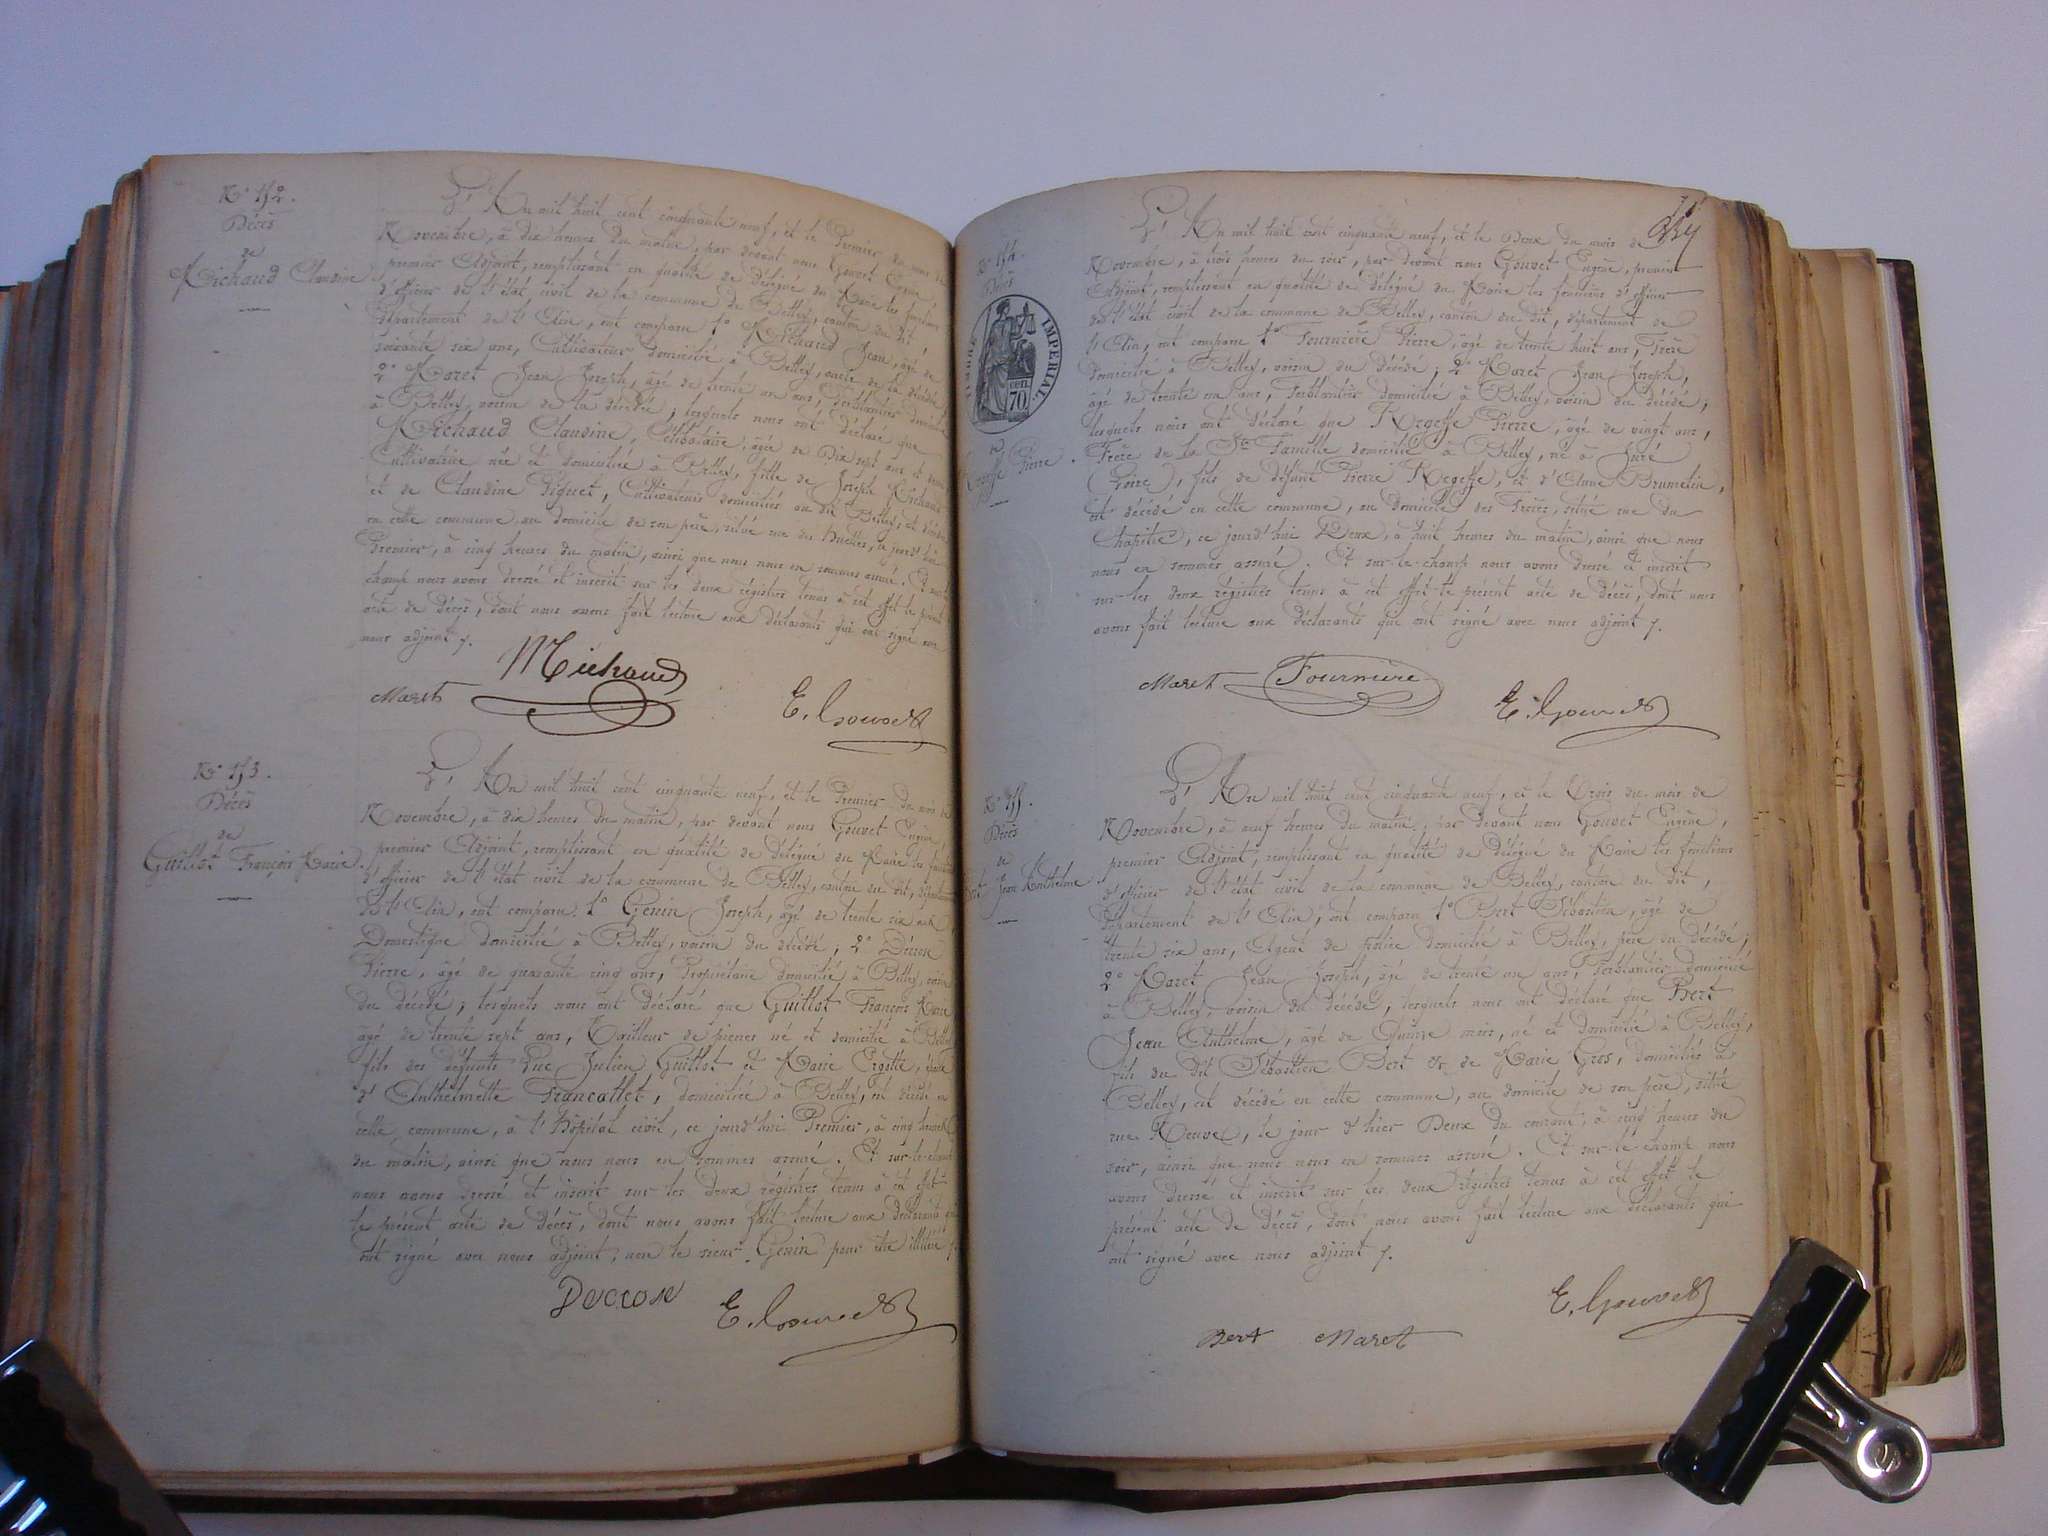 N° 152.
Décès
de
Michaud Claudine
L'An mil huit cent cinquante neuf, et le Premier du mois de
Novembre, à dix heures du matin, par devant nous Gouvet Eugène,
premier Adjoint, remplissant en qualité de délégué du Maire les fonctions
d'officier de l'état civil de la commune de Belley, canton du dit,
département de l'Ain, ont comparu 1° Michaud Jean, âgé de
soixante six ans, Cultivateur domicilié à Belley, oncle de la décédée,
2° Maret Jean Joseph, âgé de trente un ans, Ferblantier domicilié
à Belley, voisin de la décédée; lesquels nous ont déclaré que
Michaud Claudine, Célibataire, âgée de Dix sept ans et demi,
Cultivatrice née et domiciliée à Belley, fille de Joseph Michaud
et de Claudine Piquet, Cultivateurs domiciliés au dit Belley, est décédée
en cette commune au domicile de son père, située rue du, ce jourd'hui
Premier, à cinq heures du matin, ainsi que nous nous en sommes assuré. Et sur le
champ nous avons dressé et inscrit sur les deux régistres tenus à cet effet le présent
acte de décès, dont nous avons fait lecture aux déclarants qui ont signé avec
nous adjoint.
Michaud
Maret
E. Gouvet
N° 153.
Décès
de
Guillot François Marie.
L'An mil huit cent cinquante neuf, et le Premier du mois de
Novembre, à dix heures du matin, par devant nous Gouvet Eugène,
premier Adjoint, remplissant en qualité de délégué du Maire les fonctions
d'officier de l'état civil de la commune de Belley, canton du dit, département
de l'Ain, ont comparu 1° Genin Joseph, âgé de trente six ans,
Domestique domicilié à Belley, voisin du décédé, 2° Décron
Pierre, âgé de quarante cinq ans, Propriétaire domicilié à Belley, voisin
du décédé; lesquels nous ont déclaré que Guillot François Marie
âgé de trente sept ans, Tailleur de pierres né et domicilié à Belley
fils des défunts Luc Julien Guillot et Marie Ergotte, époux
d'Anthelmette Francallet, domiciliée à Belley, est décédé en
cette commune, à l'Hôpital civil, ce jourd'hui Premier, à cinq heures
du matin, ainsi que nous nous en sommes assuré. Et sur-le-champ
nous avons dressé et inscrit sur les deux régistres tenus à cet effet
le présent acte de décès, dont nous avons fait lecture aux déclarants qui
ont signé avec nous adjoint, non le sieur Genin pour être illitéré.
Decron
E. Gouvet
N° 154.
Décès
TIMBRE IMPERIAL
CENT. 70
de
Regeffe Pierre.
L'An mil huit cent cinquante neuf, et le Deux du mois de
Novembre, à trois heures du soir, par devant nous Gouvet Eugène, premier
Adjoint, remplissant en qualité de délégué du Maire les fonctions d'officier
de l'état civil de la commune de Belley, canton du dit, département de
l'Ain, ont comparu 1° Fournière Pierre, âgé de trente huit ans, Frère
domicilié à Belley, voisin du décédé; 2° Maret Jean Joseph,
âgé de trente un ans, Ferblantier domicilié à Belley, voisin du décédé;
lesquels nous ont déclaré que Regeffe Pierre, âgé de vingt ans,
Frère de la Ste Famille domicilié à Belley, né à Juré
(Loire), fils de défunt Pierre Regeffe, et d'Anne Brumelin,
est décédé en cette commune, au domicile des Frères, situé rue du
Chapitre, ce jourd'hui Deux, à huit heures du matin, ainsi que nous
nous en sommes assuré. Et sur-le-champ nous avons dressé et inscrit
sur les deux régistres tenus à cet effet le présent acte de décès, dont nous
avons fait lecture aux déclarants qui ont signé avec nous adjoint.
Maret
Fournière
E. Gouvet
N° 155.
Décès
de
Bert Jean Anthelme
L'An mil huit cent cinquante neuf, et le Trois du mois de
Novembre, à neuf heures du matin, par devant nous Gouvet Eugène,
premier Adjoint, remplissant en qualité de délégué du Maire les fonctions
d'officier de l'état civil de la commune de Belley, canton du dit,
département de l'Ain, ont comparu 1° Bert Sébastien, âgé de
trente six ans, Agent de police domicilié à Belley, père du décédé;
2° Maret Jean Joseph, âgé de trente un ans, Ferblantier domicilié
à Belley, voisin du décédé, lesquels nous ont déclaré que Bert
Jean Anthelme, âgé de Quinze mois, né et domicilié à Belley,
fils du dit Sébastien Bert & de Marie Gros, domiciliés à
Belley, est décédé en cette commune, au domicile de son père, situé
rue Neuve, le jour d'hier Deux du courant, à cinq heures du
soir, ainsi que nous nous en sommes assuré. Et sur-le-champ nous
avons dressé et inscrit sur les deux régistres tenus à cet effet le
présent acte de décès, dont nous avons fait lecture aux déclarants qui
ont signé avec nous adjoint.
E. Gouvet
Bert Maret